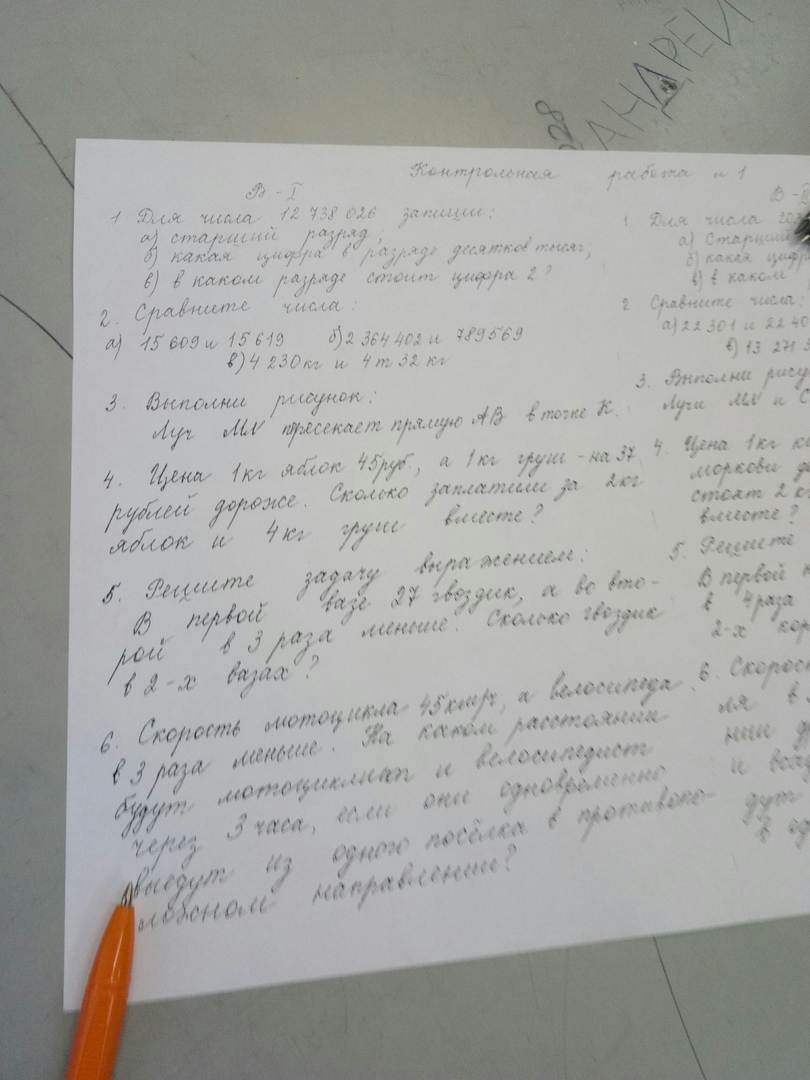 228
АНДРЕЙ
Контрольная работа № 1
В-I
1 Для числа 12 738 026 запиши:
а) старший разряд;
б) какая цифра в разряде десятков тысяч;
в) в каком разряде стоит цифра 2?
2. Сравните числа:
а) 15 609 и 15 619 б) 2 364 402 и 789 569
в) 4 230 кг и 4 т 32 кг
3. Выполни рисунок:
Луч MN пересекает прямую АВ в точке К.
4. Цена 1 кг яблок 45 руб., а 1 кг груш - на 37
рублей дороже. Сколько заплатили за 2 кг
яблок и 4 кг груш вместе?
5. Решите задачу выражением:
В первой вазе 27 гвоздик, а во вто-
рой в 3 раза меньше. Сколько гвоздик
в 2-х вазах?
6. Скорость мотоцикла 45 км/ч, а велосипеда
в 3 раза меньше. На каком расстоянии
будут мотоциклист и велосипедист
через 3 часа, если они одновременно
выедут из одного посёлка в противопо-
ложном направлении?
В-II
1 Для числа
а) Старший
б) какая цифра
в) в каком
2 Сравните числа:
а) 22 301 и 22 40
в) 13 271
3. Выполни рису
Лучи MN и С
4. Цена 1 кг ка
моркови
стоят 2 к
вместе?
5. Решите
В первой
в 4 раза
2-х кор
6. Скорос
ля в
нии
и
дут
в од